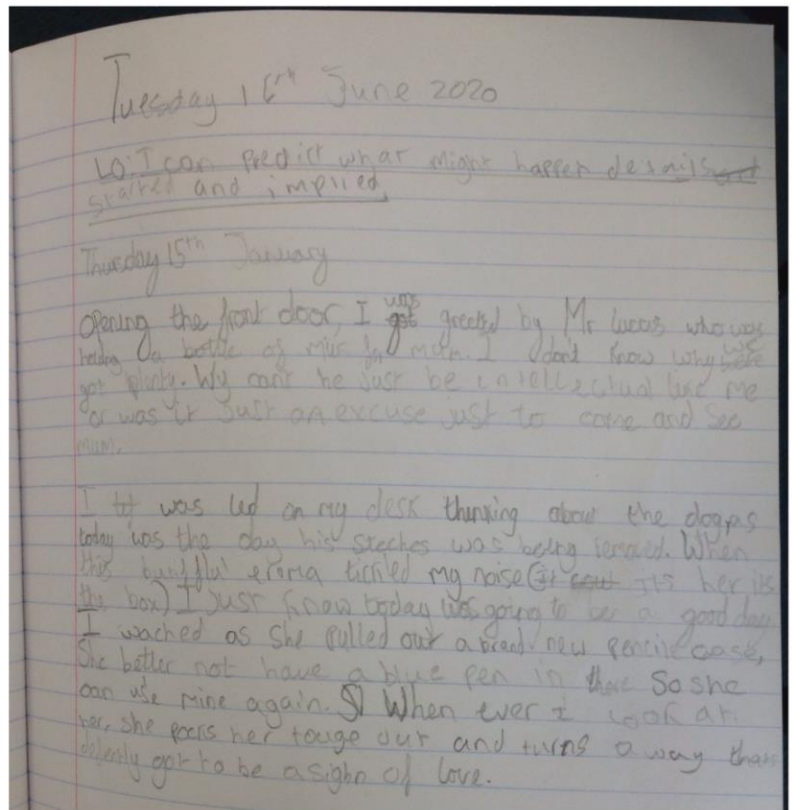 Tuesday 16th June 2020
LO: I can predict what might happen details
started and implied.
Thursday 15th January
Opening the front door, I was greeted by Mr Lucas who was
holding a bottle of for mom. I don't know why we
got plenty. Wy can't he just be intellectual like me
or was it just an excuse just to come and see
mum.
I was led on my desk thinking about the dog as
today was the day his steches was being. When
this eroma tickled my noise (it's her its
the box) I just know today was going to be a good day
I wached as she pulled out a brand new pencile case,
She better not have a blue pen in there So she
can use mine again. When ever I look at
her, she pocks her touge out and turns away thats
defently got to be a sighn of love.